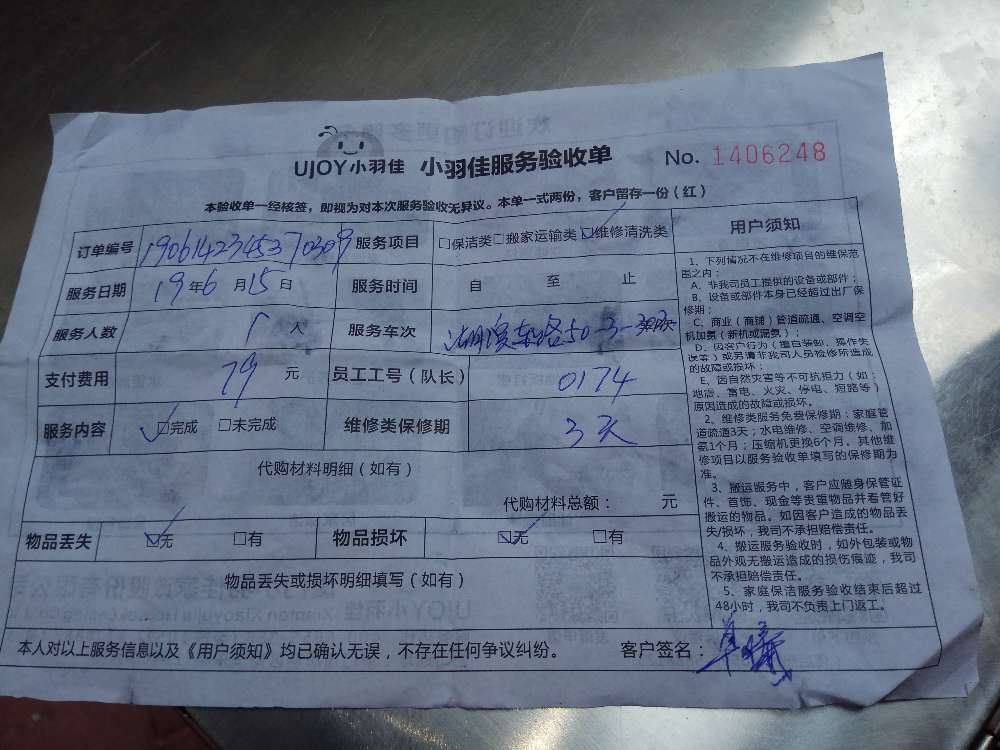 UJOY小羽佳 小羽佳服务验收单 No. 1406248
本验收单一经核签，即视为对本次服务验收无异议。本单一式两份，客户留存一份（红）
订单编号 1906142345370309 服务项目 □保洁类□搬家运输类☑维修清洗类
服务日期 19年6月15日 服务时间 自 至 止
服务人数 1人 服务车次 湖滨东路50-3-
支付费用 79 元 员工工号（队长） 0174
服务内容 ☑完成 □未完成 维修类保修期 3天
代购材料明细（如有）
代购材料总额： 元
物品丢失 ☑无 □有 物品损坏 ☑无 □有
物品丢失或损坏明细填写（如有）
本人对以上服务信息以及《用户须知》均已确认无误，不存在任何争议纠纷。 客户签名：
用户须知
1、下列情况不在维修项目的维保范
围之内：
A、非我司员工提供的设备或部件；
B、设备或部件本身已经超过出厂保
修期；
C、商业（商铺）管道疏通、空调空
机加氨（新机或漏氨）；
D、因客户行为（擅自装卸、操作失
误等）或另请非我司人员检修所造成
的故障或损坏；
E、因自然灾害等不可抗拒力（如：
地震、雷电、火灾、停电、短路等）
原因造成的故障或损坏。
2、维修类服务免费保修期：家庭管
道疏通3天；水电维修、空调维修、加
氨1个月；压缩机更换6个月。其他维
修项目以服务验收单填写的保修期为
准。
3、搬运服务中，客户应随身保管证
件、首饰、现金等贵重物品并看管好
搬运的物品。如因客户造成的物品丢
失/损坏，我司不承担赔偿责任。
4、搬运服务验收时，如外包装或物
品外观无搬运造成的损伤痕迹，我司
不承担赔偿责任。
5、家庭保洁服务验收结束后超过
48小时，我司不负责上门返工。